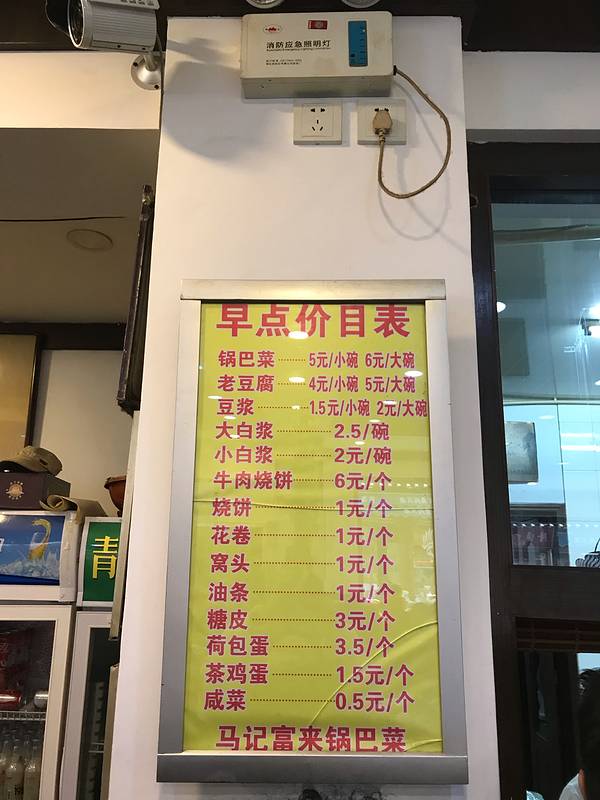 消防应急照明灯
早点价目表
锅巴菜········5元/小碗 6元/大碗
老豆腐········4元/小碗 5元/大碗
豆浆············1.5元/小碗 2元/大碗
大白浆············2.5/碗
小白浆············2元/碗
牛肉烧饼········6元/个
烧饼················1元/个
花卷················1元/个
窝头················1元/个
油条················1元/个
糖皮················3元/个
荷包蛋············3.5/个
茶鸡蛋············1.5元/个
咸菜················0.5元/个
马记富来锅巴菜
青